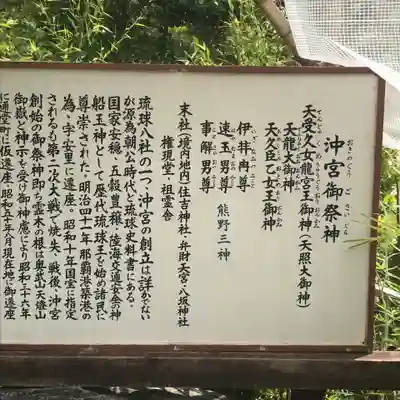 沖宮御祭神
おきのぐう ごさいじん
天受久女龍宮王御神(天照大御神)
天龍大御神
天久臣乙女王御神
伊弉冉尊
速玉男尊 熊野三神
事解男尊
末社(境内地内)住吉神社・弁財天宮・八坂神社
権現堂・祖霊舎
琉球八社の一つ、沖宮の創立は詳かでない
が源為朝公時代と琉球史料書にある。
国家安穏、五穀豊穣、陸海交通安全の神
船玉神として歴代琉球王を始め諸民に
尊崇された。明治四十一年那覇港築港の
為、字安里に遷座。昭和十年国宝に指定
されるも第二次大戦で焼失、戦後、沖宮
創始の御祭神即ち霊木の根は奥武山天燈山
御嶽と神示を受け御神慮により昭和三十六年
に通堂町に仮遷座、昭和五十年月現在地に御遷座